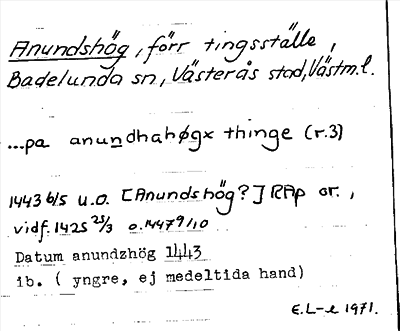 Anundshög, förr tingsställe,
Badelunda sn, Västerås stad, Västm. l.
...pa anundhahøgx thinge (r.3)
1443 6/5 u.o. [Anundshög?] RAp or.,
vidf. 1425 25/3 o. 1447 9/10
Datum anundzhög 1443
ib. ( yngre, ej medeltida hand)
E.L-e 1971.